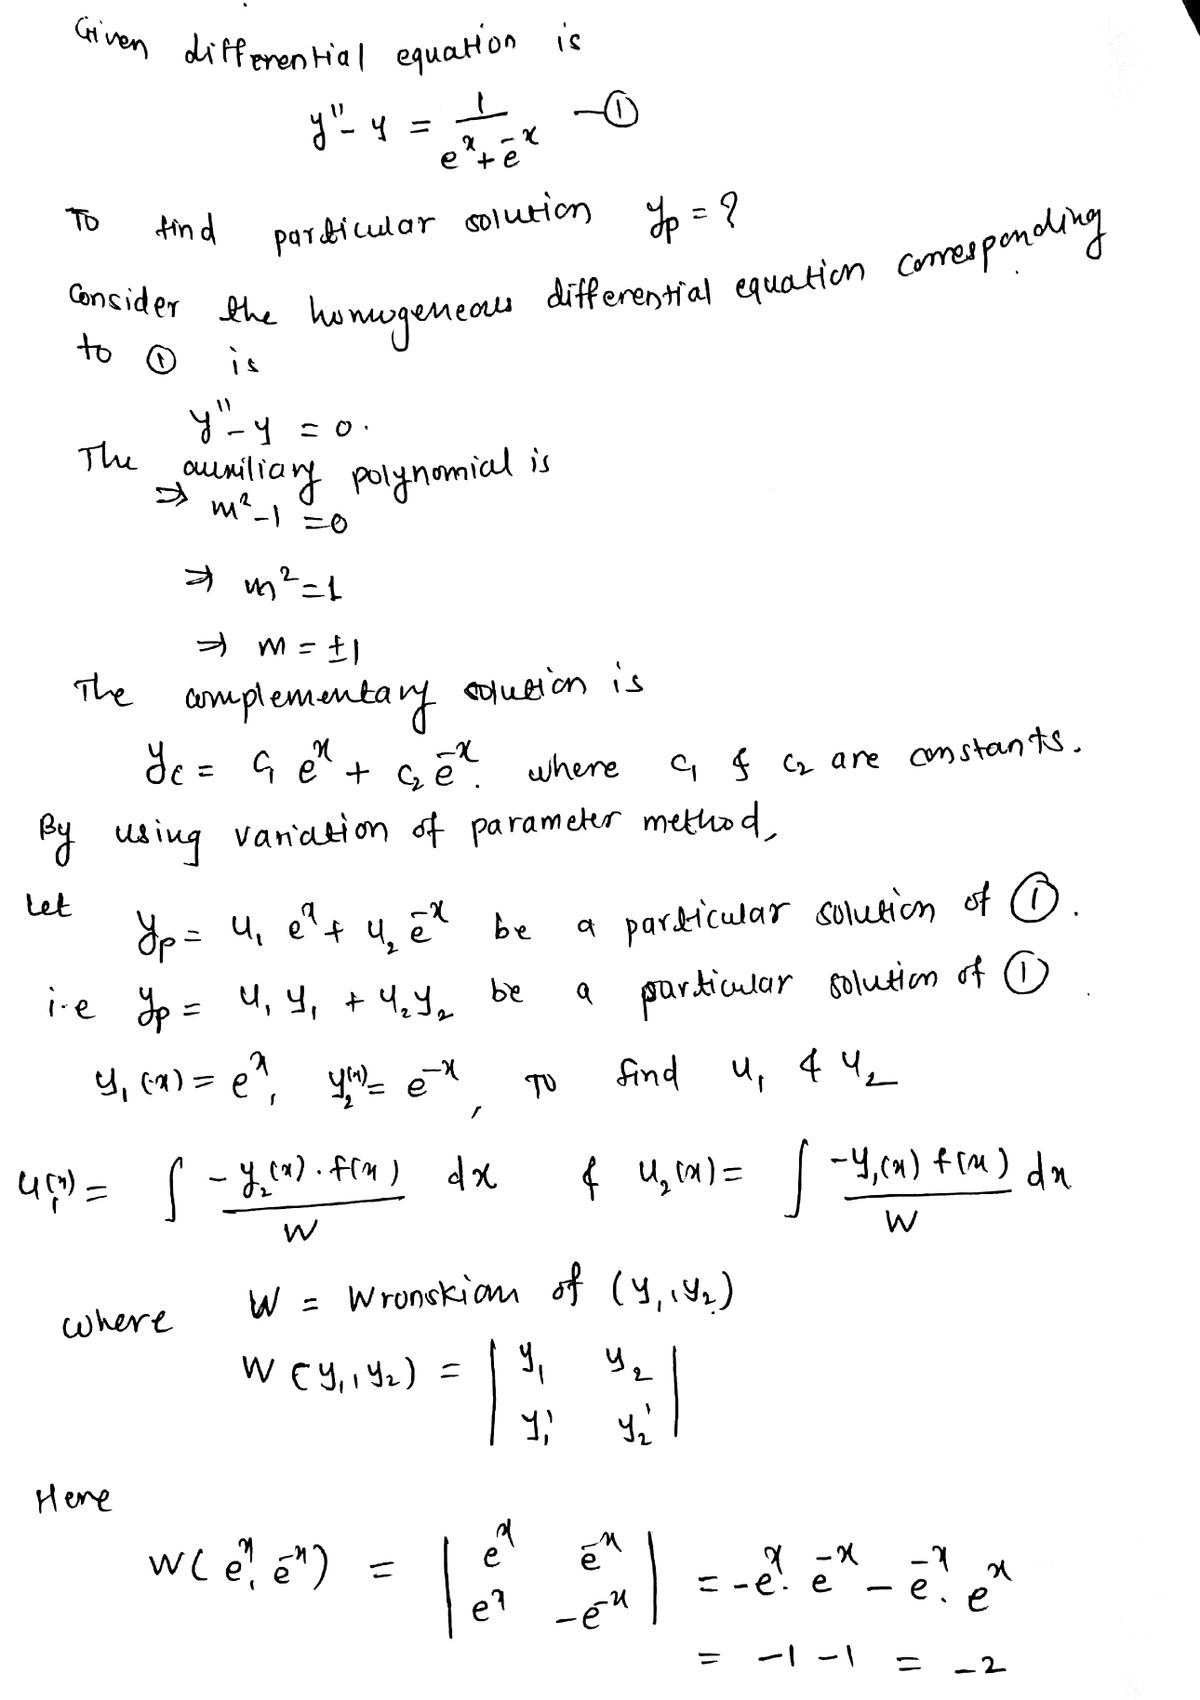 Given differential equation is
y'' - y = 1/(e^x + e^-x) — ①
To find particular solution y_p = ?
Consider the homogeneous differential equation corresponding
to ① is
y'' - y = 0.
The auxiliary polynomial is
⇒ m² - 1 = 0
⇒ m² = 1
⇒ m = ±1
The complementary solution is
y_c = c₁ e^x + c₂ e^-x. where c₁ & c₂ are constants.
By using variation of parameter method,
Let y_p = u₁ e^x + u₂ e^-x be a particular solution of ①.
i.e y_p = u₁ y₁ + u₂ y₂ be a particular solution of ①
y₁(x) = e^x, y₂(x) = e^-x, To find u₁ & u₂
u₁(x) = ∫ -y₂(x) · f(x) / W dx & u₂(x) = ∫ -y₁(x) f(x) / W dx
where W = Wronskian of (y₁, y₂)
W(y₁, y₂) = | y₁ y₂ |
| y₁' y₂' |
Here
W(e^x, e^-x) = | e^x e^-x | = -e^x. e^-x - e^-x. e^x
| e^x -e^-x |
= -1 -1 = -2